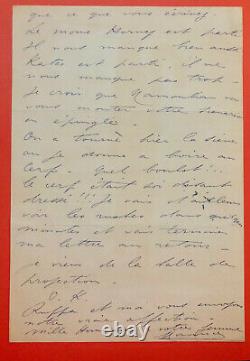 que ce que vous écrivez.
Le mous est parti
Il nous manque bien aussi
Kates est parti. Il ne
nous manque pas trop -
Je crois que Noirmoutier va
vous monter votre scénario
en épingle.
On a tourné hier la scène
où je donne à boire au
Cerf. Quel boulot!..
le cerf était soi disant
dressé!!! Je vais d'ailleurs
voir les rushes dans quelques
minutes et vais terminer
ma lettre au retour -
je viens de la salle de
projection.
O.K.
et ma vous envoyons
notre vraie affection -
Mille votre